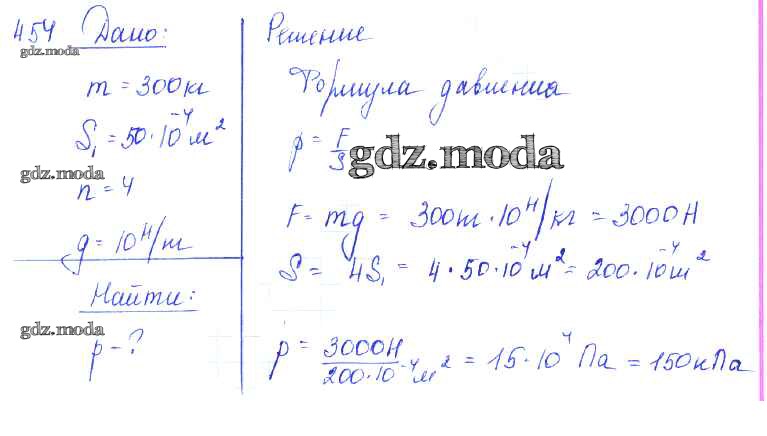 454 Дано:
gdz.moda
m = 300кг
S₁ = 50·10⁻⁴м²
gdz.moda
n = 4
g = 10 Н/m
Найти:
gdz.moda
p - ?
Решение
Формула давления
p = F/S
gdz.moda
F = mg = 300m · 10 Н/кг = 3000Н
S = 4S₁ = 4·50·10⁻⁴м² = 200·10⁻⁴м²
p = 3000Н / 200·10⁻⁴м² = 15·10⁴ Па = 150кПа